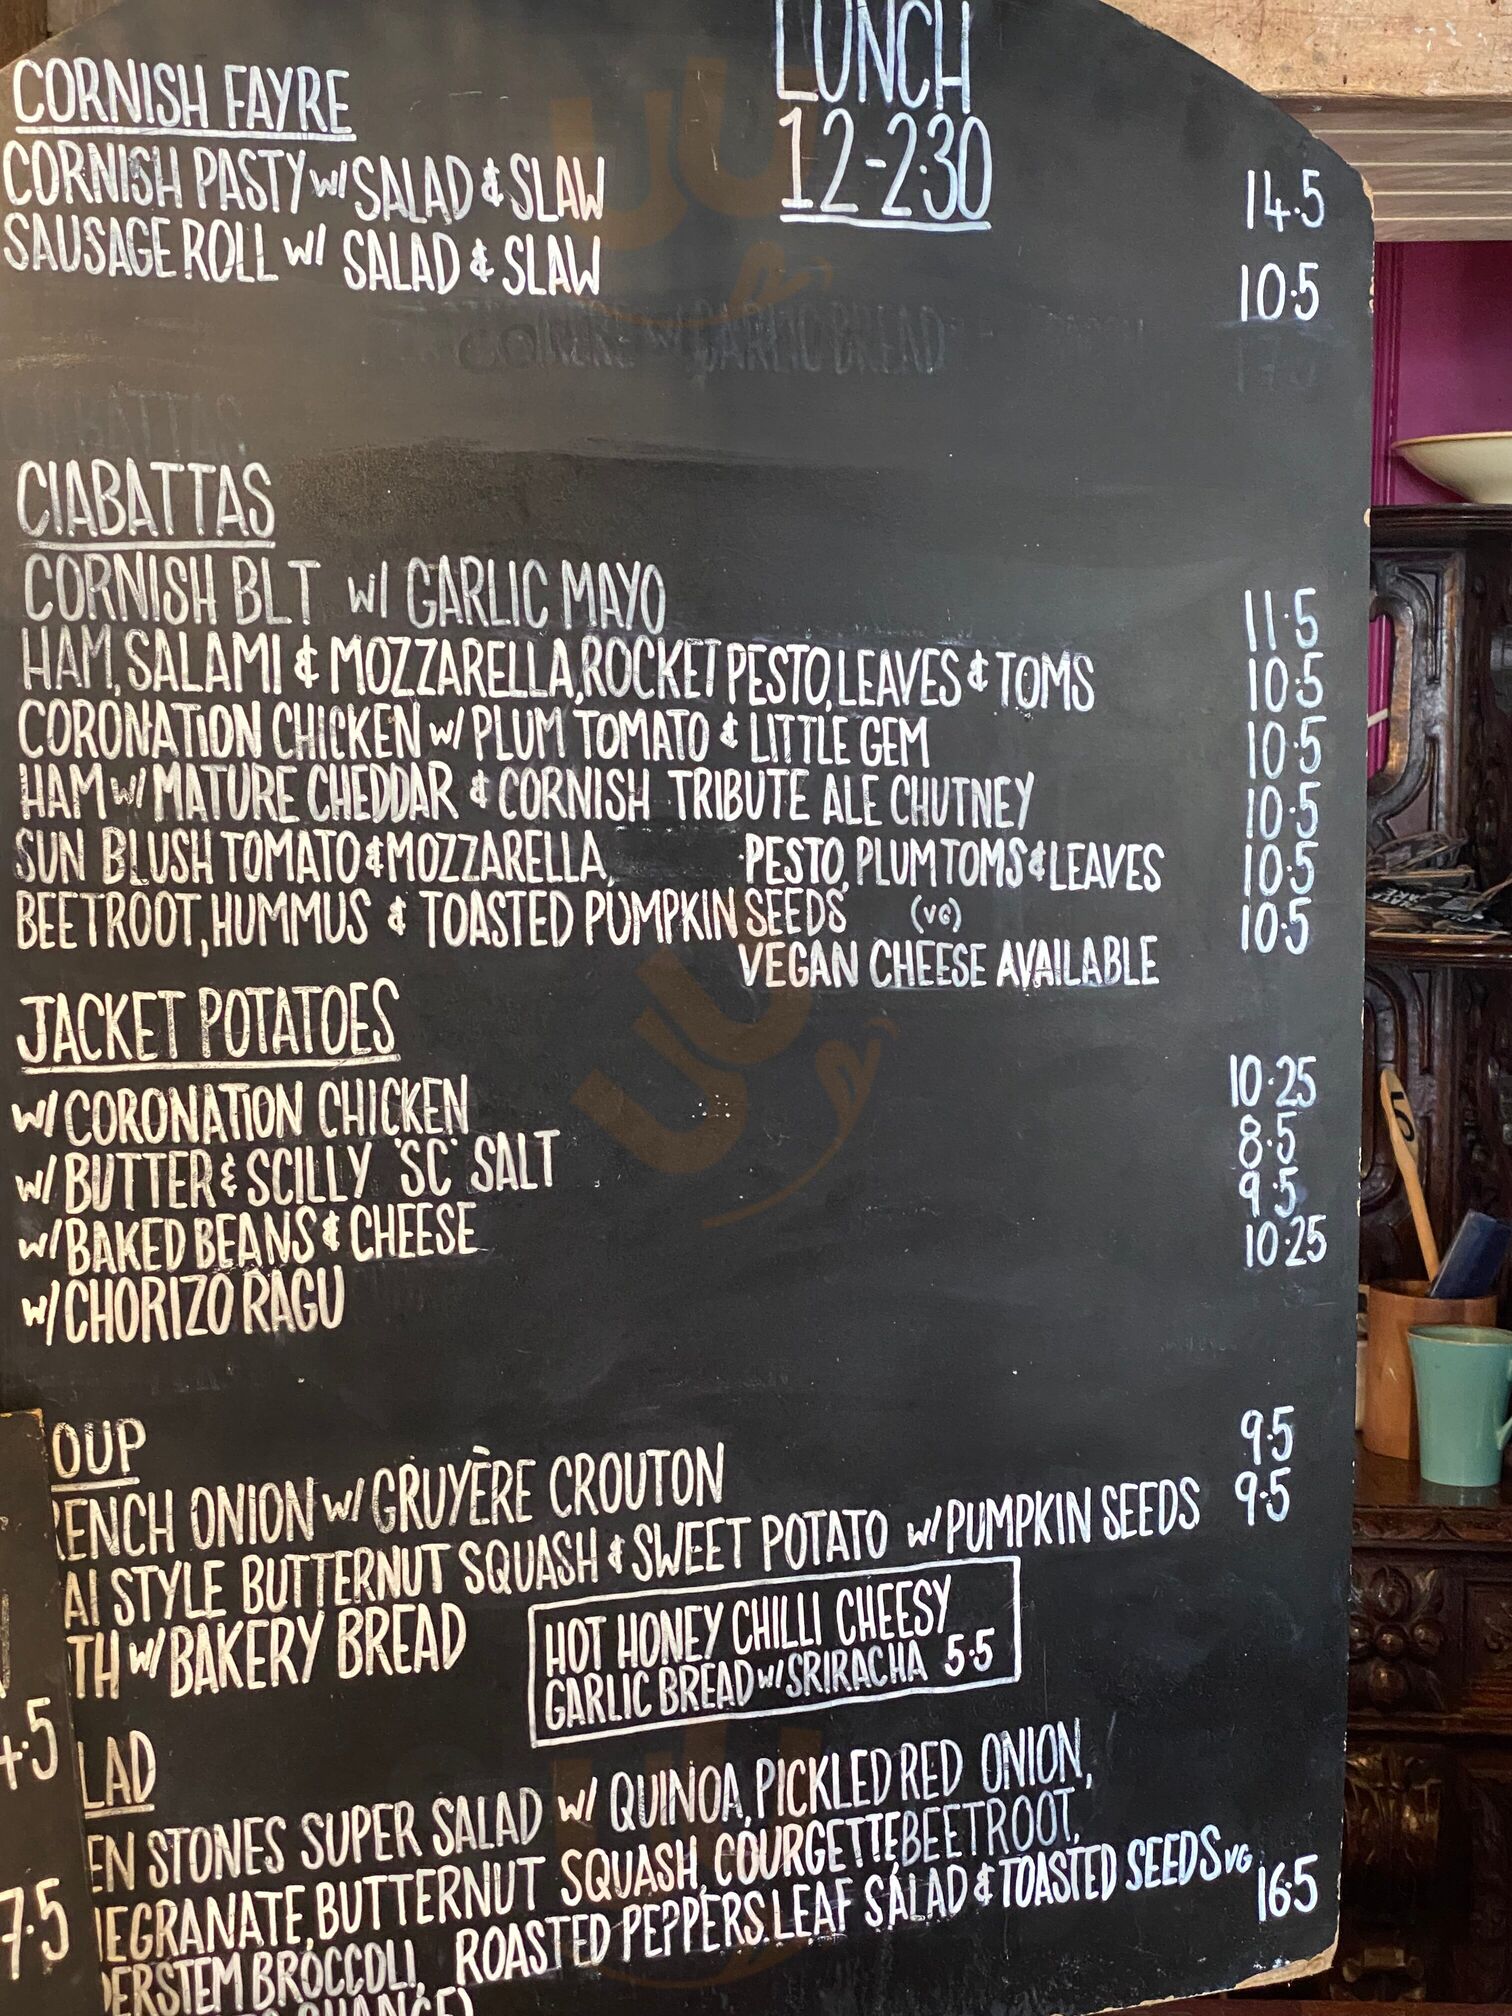 LUNCH
12-2:30
CORNISH FAYRE
CORNISH PASTY w/ SALAD & SLAW 14.5
SAUSAGE ROLL w/ SALAD & SLAW 10.5
CIABATTAS
CORNISH BLT w/ GARLIC MAYO 11.5
HAM, SALAMI & MOZZARELLA, ROCKET PESTO, LEAVES & TOMS 10.5
CORONATION CHICKEN w/ PLUM TOMATO & LITTLE GEM 10.5
HAM w/ MATURE CHEDDAR & CORNISH TRIBUTE ALE CHUTNEY 10.5
SUN BLUSH TOMATO & MOZZARELLA, PESTO, PLUM TOMS & LEAVES 10.5
BEETROOT, HUMMUS & TOASTED PUMPKIN SEEDS (VG) 10.5
VEGAN CHEESE AVAILABLE
JACKET POTATOES
w/ CORONATION CHICKEN 10.25
w/ BUTTER & SCILLY 'SC' SALT 8.5
w/ BAKED BEANS & CHEESE 9.5
w/ CHORIZO RAGU 10.25
OUP
ENCH ONION w/ GRUYÈRE CROUTON 9.5
AI STYLE BUTTERNUT SQUASH & SWEET POTATO w/ PUMPKIN SEEDS 9.5
TH w/ BAKERY BREAD
HOT HONEY CHILLI CHEESY
GARLIC BREAD w/ SRIRACHA 5.5
LAD
EN STONES SUPER SALAD w/ QUINOA, PICKLED RED ONION,
EGRANATE, BUTTERNUT SQUASH, COURGETTE BEETROOT,
DERSTEM BROCCOLI, ROASTED PEPPERS. LEAF SALAD & TOASTED SEEDS VG 16.5
4.5
7.5